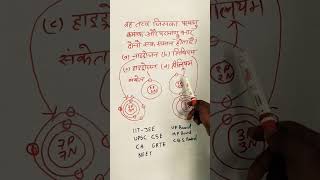 वह तत्व जिसका परमाणु
क्रमांक और परमाणु भार
दोनो एक समान होता है।
(a) नाइट्रोजन (b) लिथियम
(c) हाइड्रोजन (d) हीलियम
संकेत
(c) हाइड्रो
लियम
संकेत
1P
2P
2N
7P
7N
3P
IIT-JEE UP Board
UPSC CSE MP Board
CA GATE CBSE Board
NEET